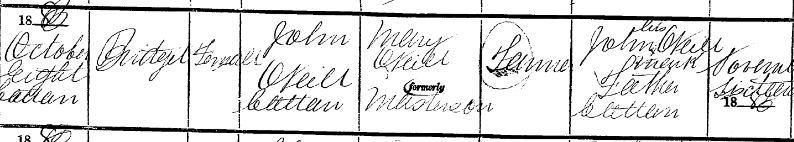 18 82
October
Eighth
Cattan
Bridget
Female
John
O'Neill
Cattan
Mary
O'Neill
formerly
Masterson
Farmer
John O'Neill
his
mark
Father
Cattan
November
Sixteen
18 82
18 82